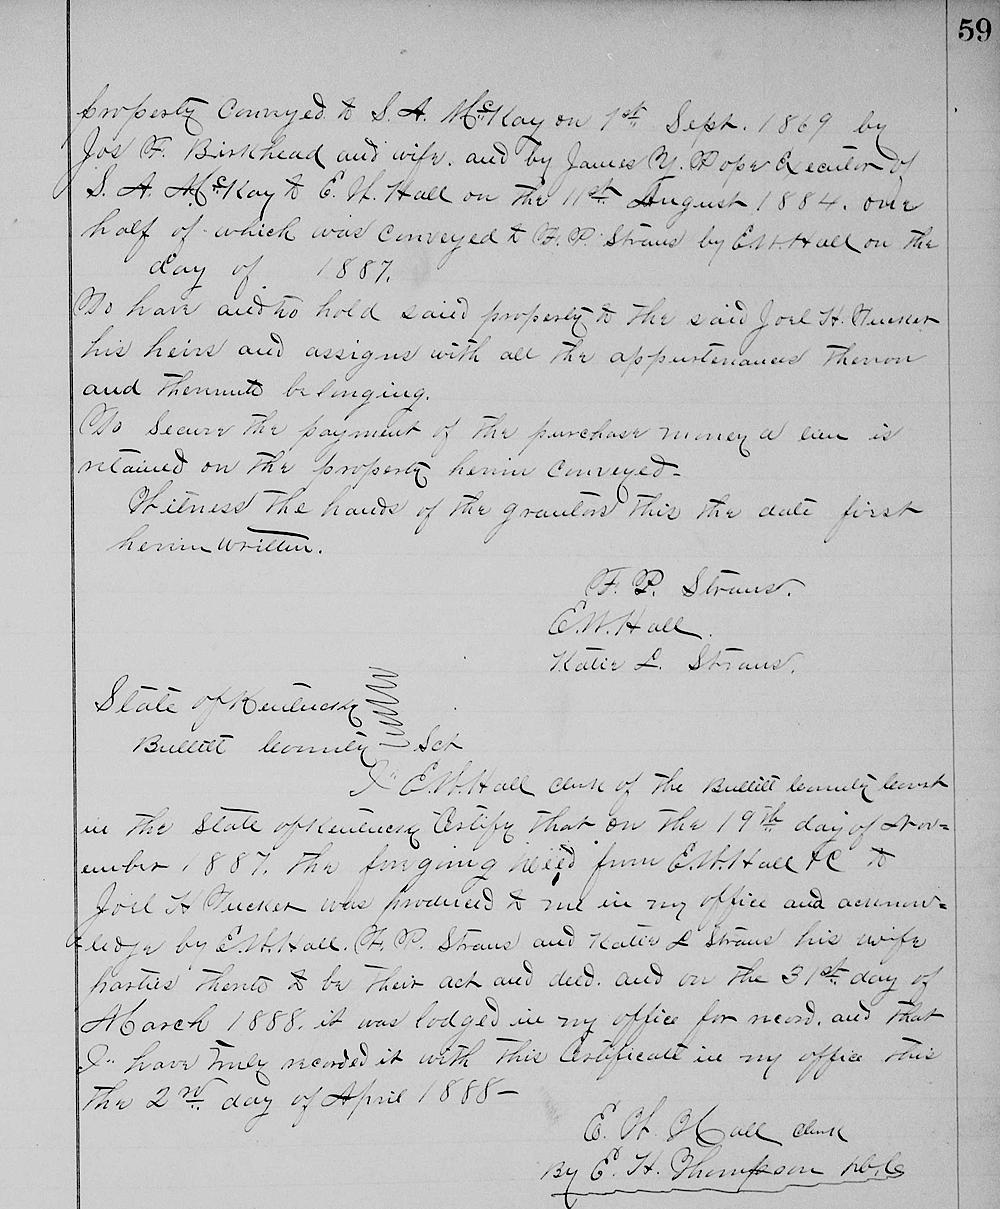 59
property conveyed to S. A. McKay on 1st Sept. 1869 by
Jos F. Birkhead and wife. and by James Y. Pope Executor of
S. A. McKay to E. W. Hall on the 11st August 1884. one
half of which was conveyed to F. P. Straus by E.W. Hall on the
day of 1887.
To have and to hold said property to the said Joel H. Tucker
his heirs and assigns with all the appurtenances thereon
and thereunto belonging.
To Secure the payment of the purchase money a lien is
retained on the property herein conveyed-
Witness the hands of the grantors this the date first
herein written.
F. P. Straus.
E. W. Hall.
Katie L. Straus.
State of Kentucky
Bullitt County Sct
I E. W. Hall clerk of the Bullitt County Court
in the State of Kentucky Certify that on the 19th day of Nov=
ember 1887. the foregoing deed from E. W. Hall &C to
Joel H Tucker was produced to me in my office and acknow=
ledge by E. W. Hall. F. P. Straus and Katie L Straus his wife
parties thereto to be their act and deed. and on the 31st day of
March 1888. it was lodged in my office for record. and that
I have truly recorded it with this Certificate in my office this
the 2nd day of April 1888-
E. W. Hall clerk
By E. H. Thompson D.C.